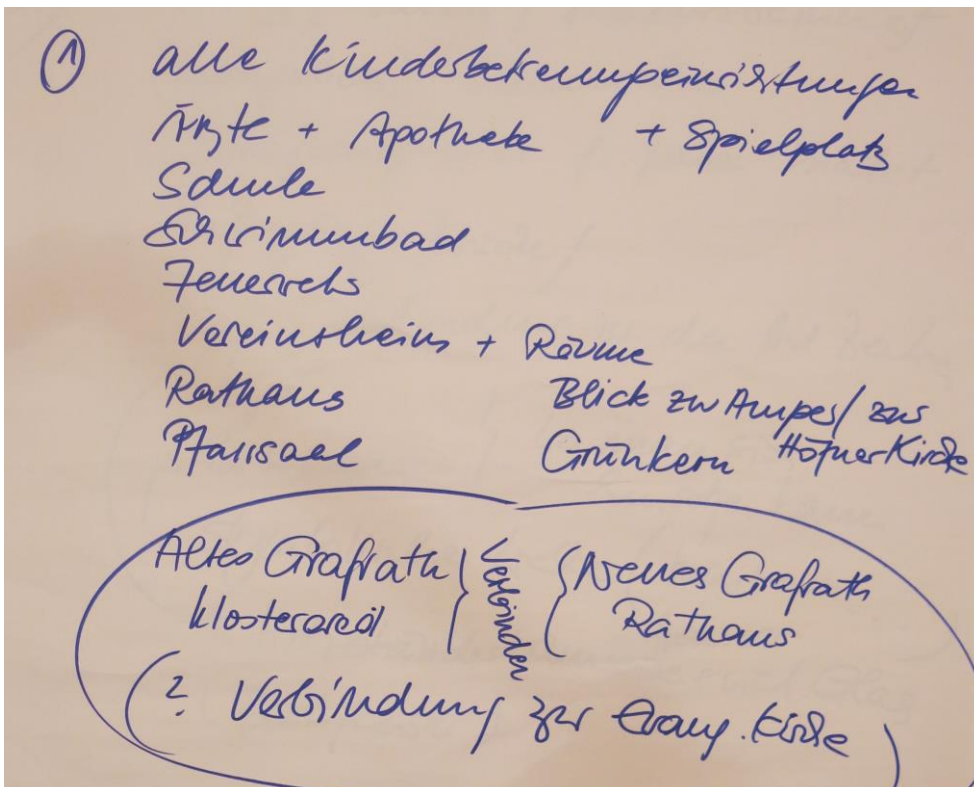 ① alle Kinderbetreuungseinrichtungen
Ärzte + Apotheke + Spielplatz
Schule
Schwimmbad
Feuerwehr
Vereinsheim + Räume
Rathaus
Blick zur Amper / zur
Pfarrsaal
Grünkern Höfner Kirche
Altes Grafrath
Klosterareal
Verbinden
Neues Grafrath
Rathaus
(? Verbindung zur Evang. Kirche)